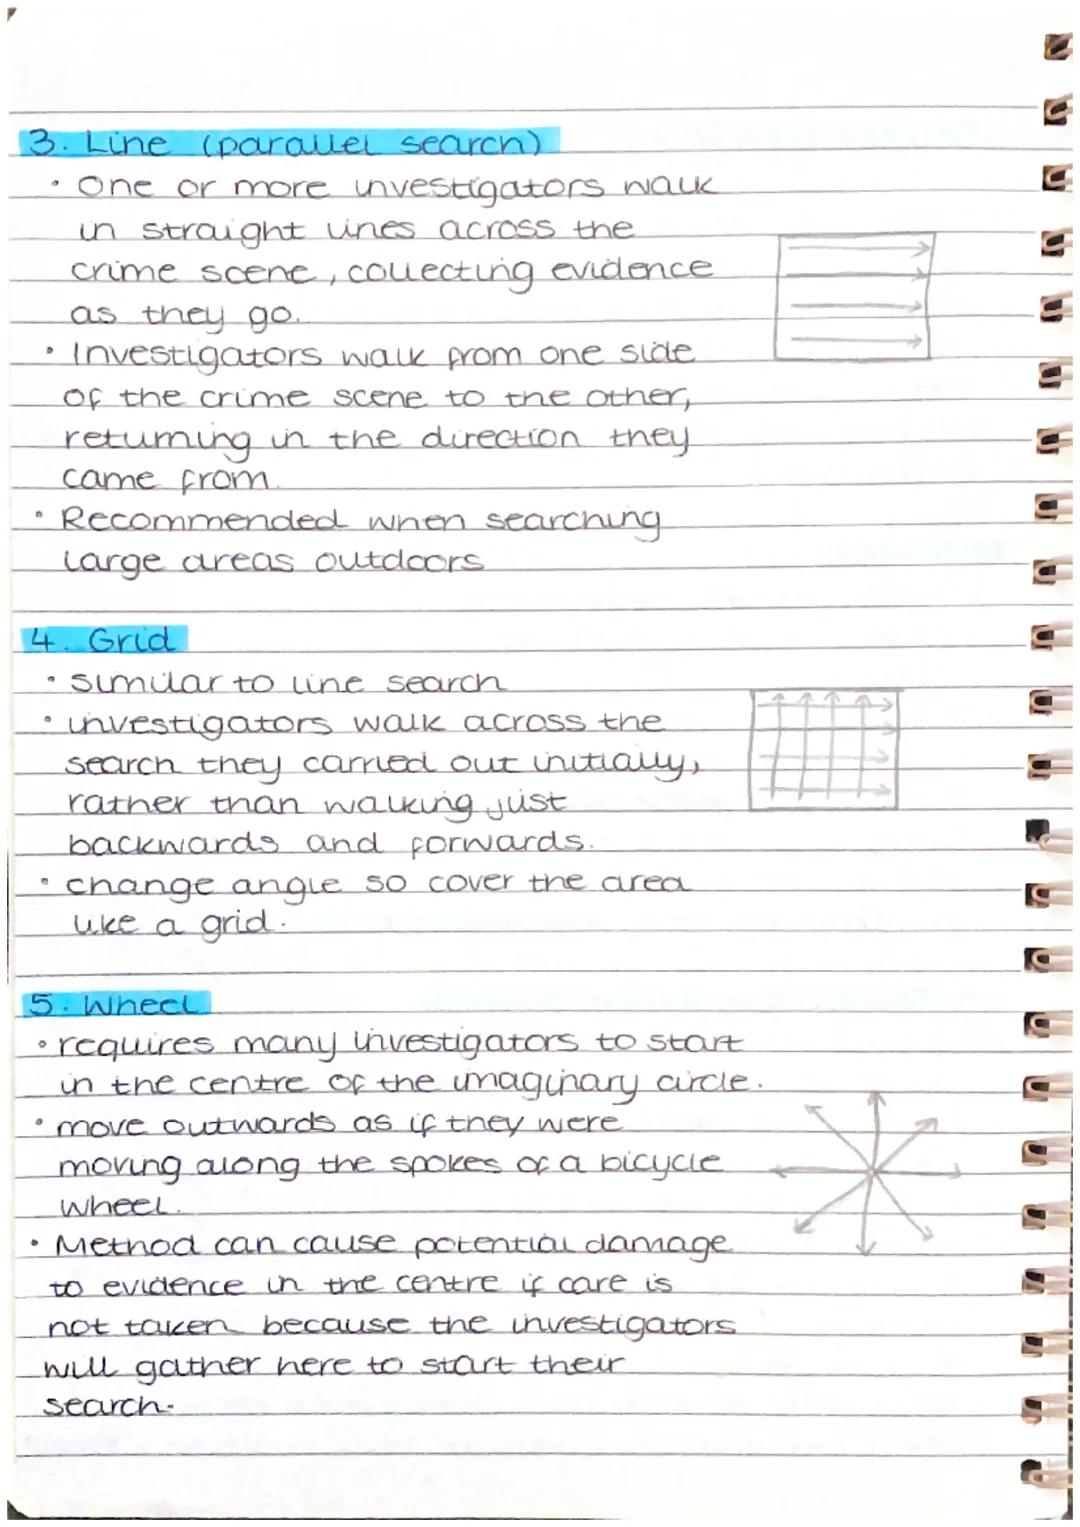 3. Line (parallel search)
• One or more investigators walk
in straight lines across the
crime scene, collecting evidence
as they go.
• Investigators walk from one side
of the crime scene to the other,
returning in the direction they
came from.
• Recommended when searching
large areas outdoors
4. Grid
• similar to line search
• investigators walk across the
search they carried out initially,
rather than walking just
backwards and forwards.
• change angle so cover the area
like a grid.
5. Wheel
• requires many investigators to start
in the centre of the imaginary circle.
• move outwards as if they were
moving along the spokes of a bicycle
wheel.
• Method can cause potential damage
to evidence in the centre if care is
not taken because the investigators
will gather here to start their
search.